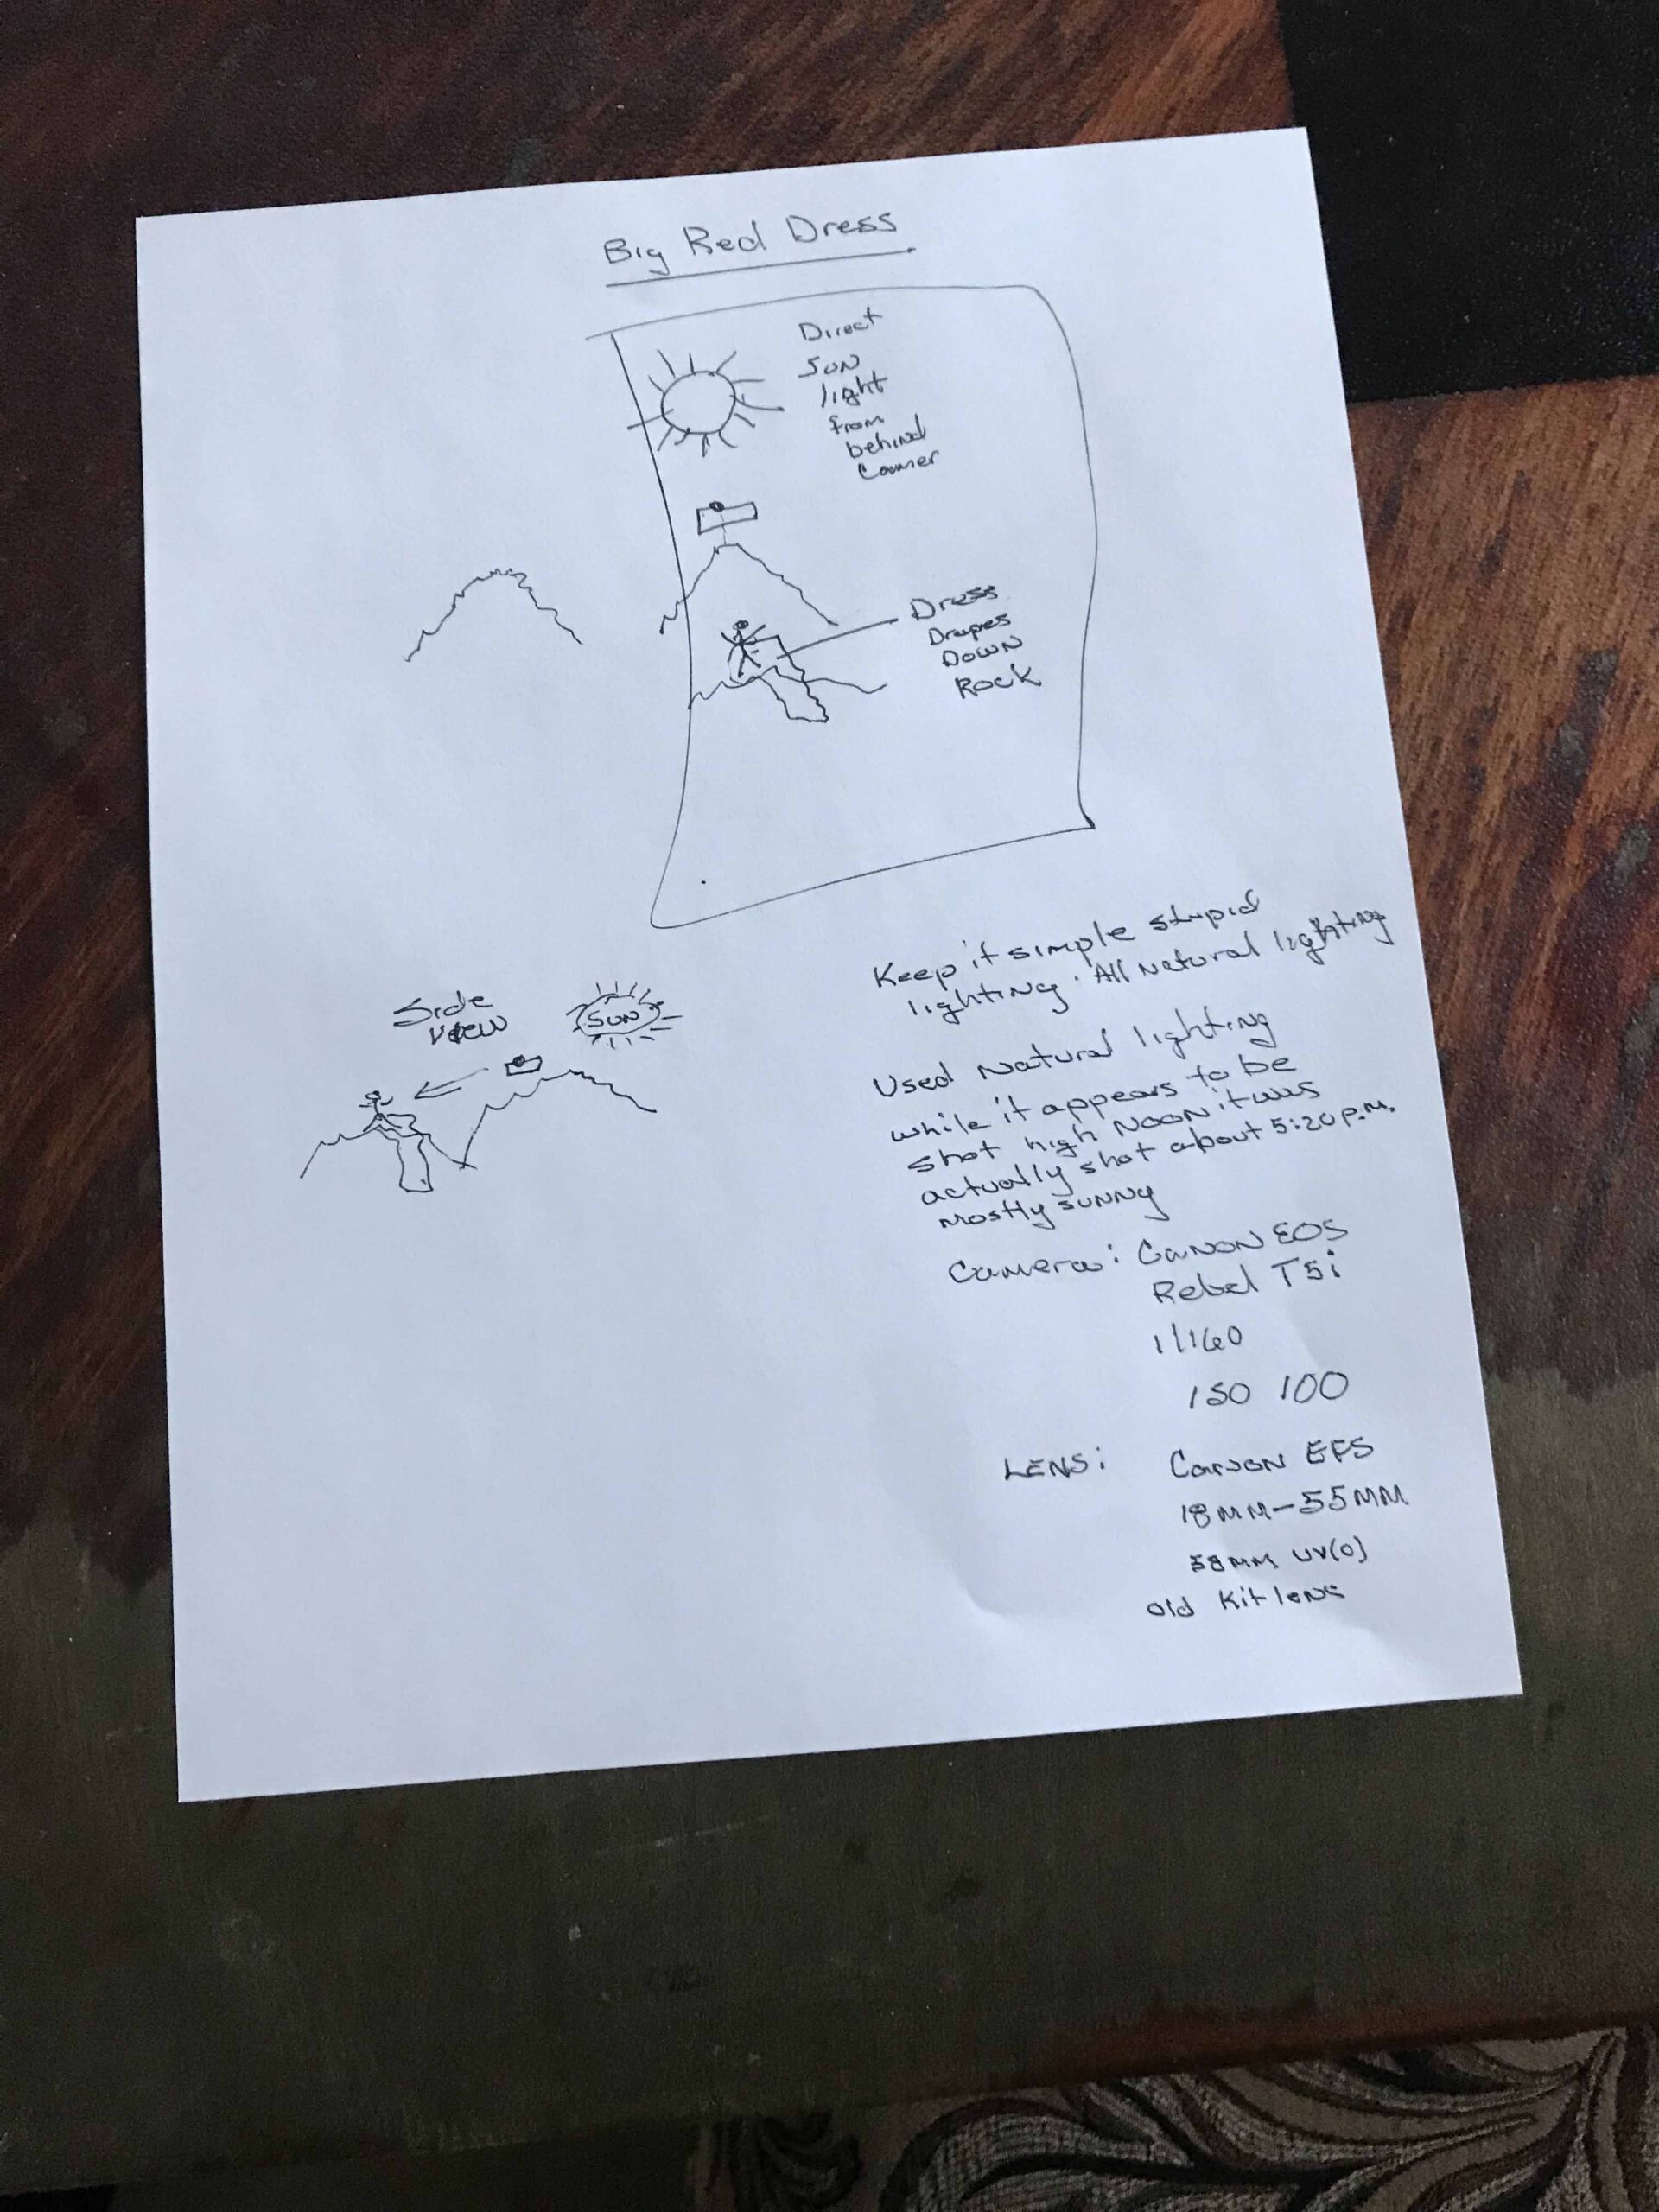 Big Red Dress
Direct
Sun
light
from
behind
Camer
Dress
Drapes
Down
Rock
Keep it simple stupid
lighting. All Natural lighting
Side
view
SUN
Used Natural lighting
while it appears to be
shot high Noon it was
actually shot about 5:20 P.M.
mostly sunny
Camera: Canon EOS
Rebel T5i
1/160
ISO 100
LENS: Canon EFS
18MM-55MM
58MM UV(0)
Old Kit lens